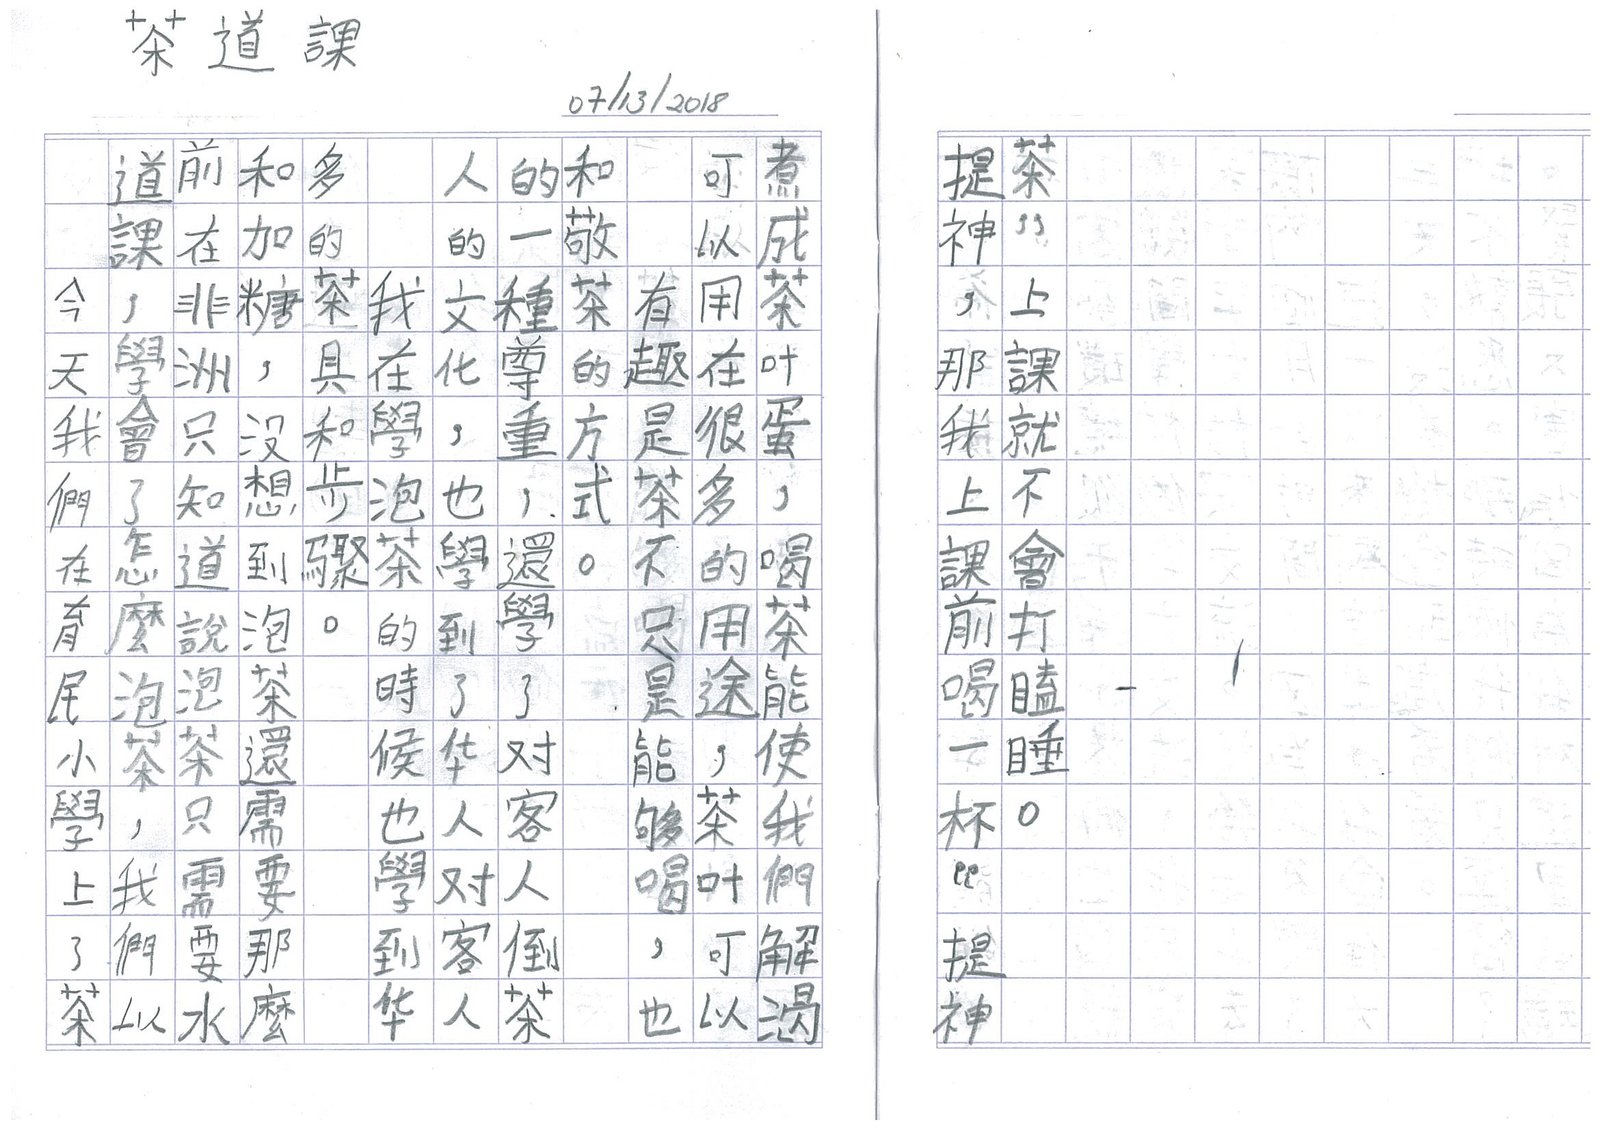 茶道課
07/13/2018
今天我們在育民小學上了茶
道課，學會了怎麼泡茶，我們以
前在非洲只知道說泡茶只需要水
和加糖，没想到泡茶還需要那麼
多的茶具和步驟。
我在學泡茶的時候也學到华
人的文化，也學到了华人对客人
的一種尊重，還學了对客人倒茶
和敬茶的方式。
有趣是茶不只是能够喝，也
可以用在很多的用途，茶叶可以
煮成茶叶蛋，喝茶能使我們解渴
提神，那我上課前喝一杯“提神
茶”上課就不會打瞌睡。